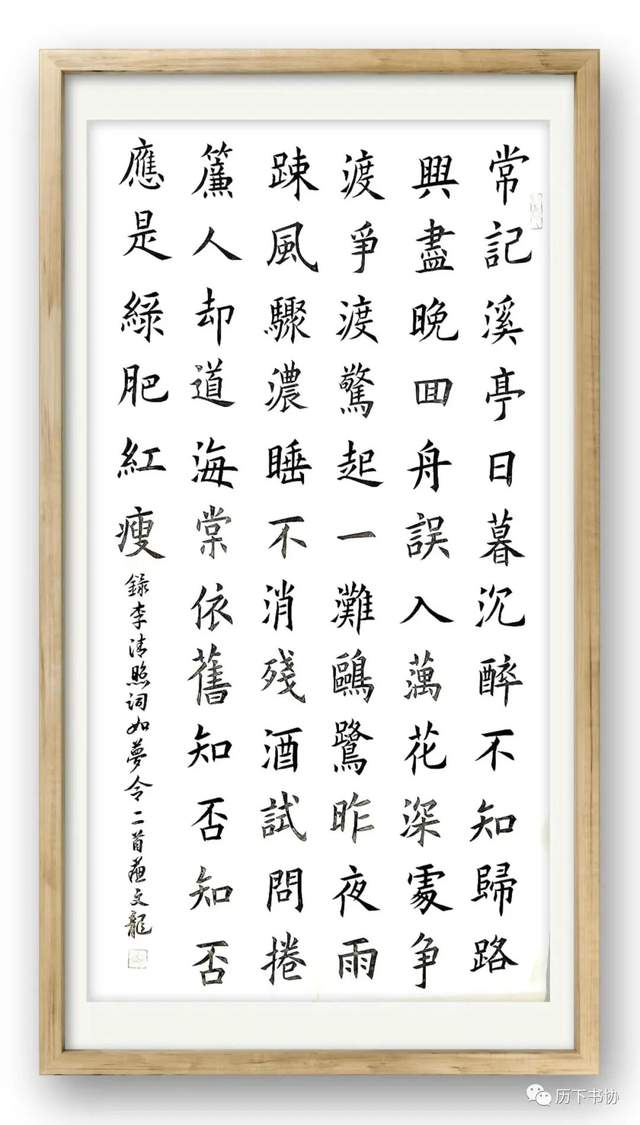 常記溪亭日暮沉醉不知歸路
興盡晚回舟誤入藕花深處爭
渡爭渡驚起一灘鷗鷺昨夜雨
踈風驟濃睡不消殘酒試問捲
簾人却道海棠依舊知否知否
應是綠肥紅瘦
錄李清照詞如夢令二首 文龍
历下书协